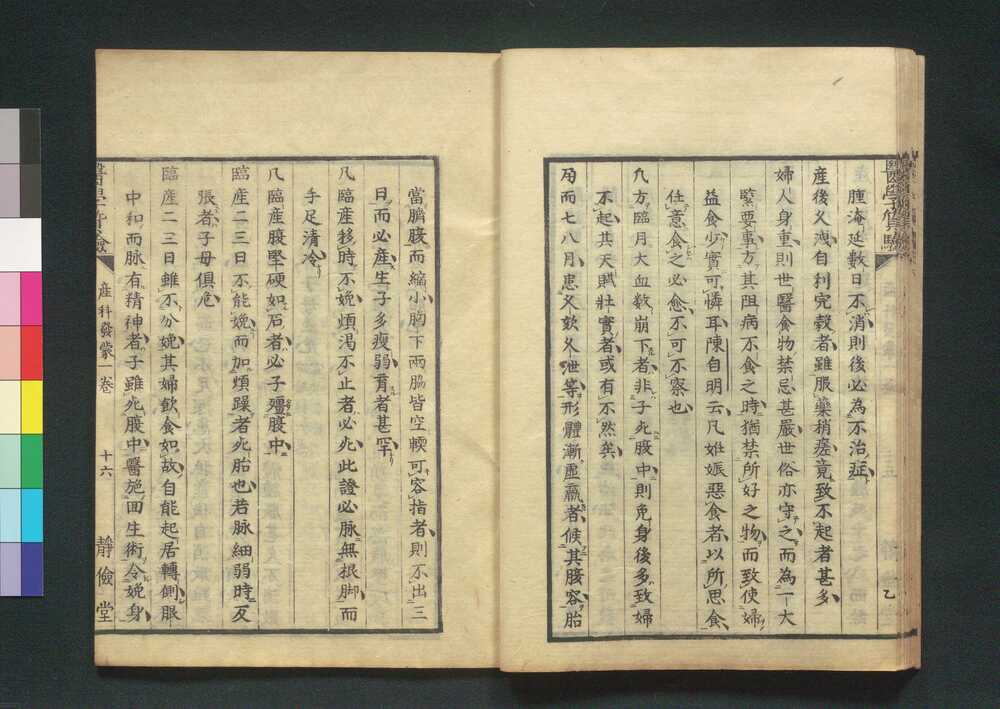 腫淹延數日不消則後必為不治症
産後久洩自利完穀者雖服藥稍瘥竟致不起者甚多
婦人身重則世醫食物禁忌甚嚴世俗亦守之而為一大
緊要事方其阻病不食之時猶禁所好之物而致使婦
益食少實可憐耳陳自明云凡姙娠惡食者以所思食
仕意食之必愈不可不察也
凢方臨月大血數崩下者非子死腹中則免身後多致婦
不起其天賦壯實者或有不然矣
孕而七八月患久欬久泄等形體漸虛羸者候其腹容胎
當臍腹而縮小胸下兩脇皆空軟可容指者則不出三
日而必産生子多瘦弱育者甚罕
凡臨産移時不娩煩渴不止者必死此證必脉無根脚而
手足清冷
凡臨産腹堅硬如石者必子殭腹中
臨産二三日不能娩而加煩躁者死胎也若脉細弱時反
張者子母俱危
臨産二三日雖不分娩其婦飲食如故自能起居轉側眼
中和而脉有精神者子雖死腹中醫施回生術令娩身
産科發蒙一卷
十六
靜儉堂